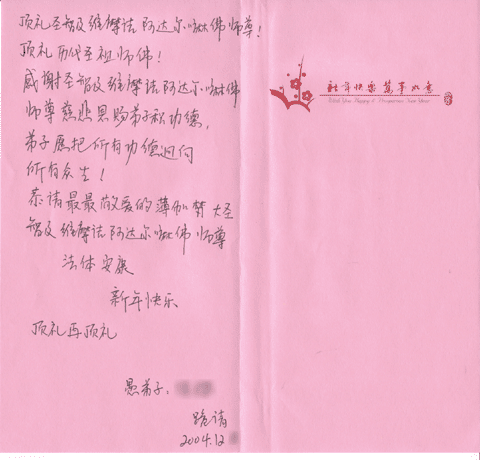 顶礼圣智及维摩诘阿达尔佛师尊!
顶礼历代圣祖师佛!
感谢圣智及维摩诘阿达尔佛
师尊慈悲恩赐弟子功德,
弟子愿把所有功德迴向
所有众生!
恭请最最敬爱的薄伽梵 大圣
智及维摩诘阿达尔佛 师尊
法体安康
新年快乐
顶礼再顶礼
愚弟子:
跪请
2004.12
新年快樂 萬事如意
Wish You Happy & Prosperous New Year